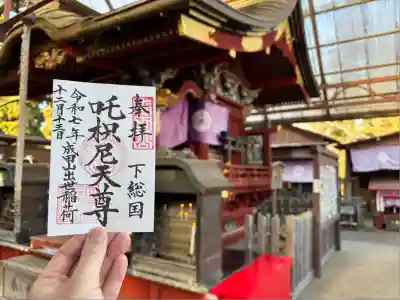 奉拝
下総国
吒枳尼天尊
令和七年 成田山出世稲荷
十二月十三日